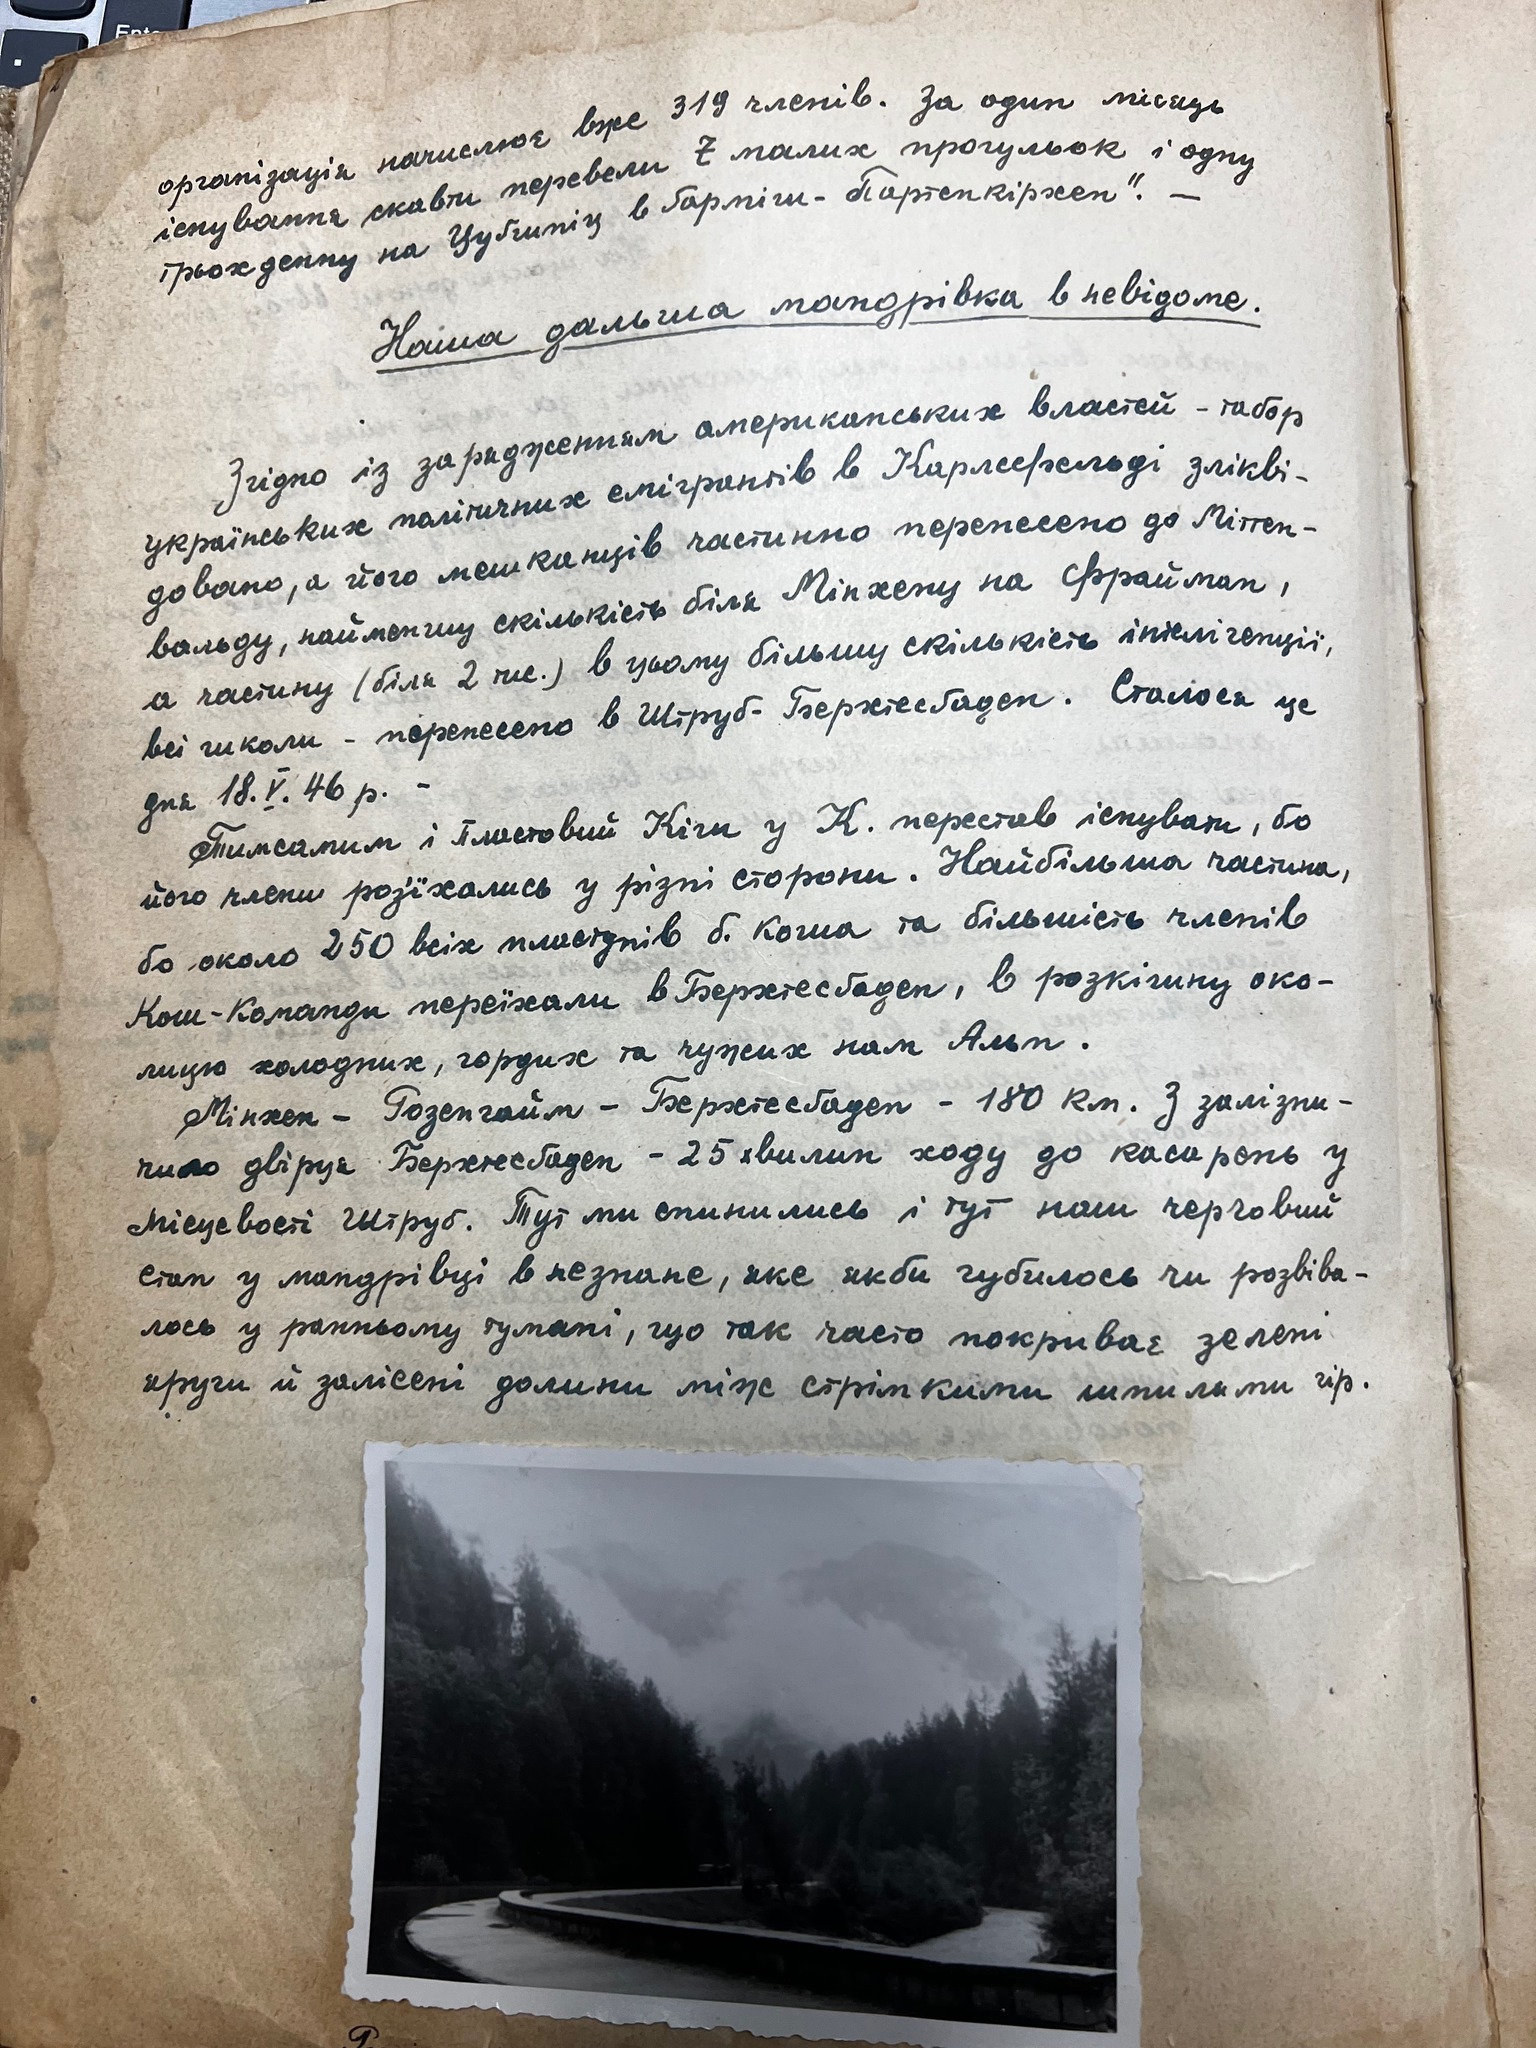 Enter
організація начислює вже 319 членів. За один місяць
існування скавти перевели 7 малих прогульок і одну
трьохденну на Цубшпіц в Гарміш-Партенкірхен". —
Наша дальша мандрівка в невідоме.
Згідно із зарядженням американських властей - табор
українських політичних емігрантів в Карлсфельді злікві-
довано, а його мешканців частинно перенесено доМіттен-
вальду, найменшу скількість біля Мінхену на Фрайман,
а частину (біля 2 тис.) в цьому більшу скількість інтелігенції,
всі школи - перенесено в Штруб-Берхтесгаден. Сталося це
дня 18.V.46 р. -
Тимсамим і Пластовий Кіш у К. перестав існувати, бо
його члени розїхались у різні сторони. Найбільша частина,
бо около 250 всіх пластунів б. Коша та більшість членів
Кош-Команди переїхали в Берхтесгаден, в розкішну око-
лицю холодних, гордих та чужих нам Альп.
Мінхен - Розенгайм - Берхтесгаден - 180 км. З залізни-
чного двірця Берхтесгаден - 25 хвилин ходу до касарень у
місцевості Штруб. Тут ми спинились і тут наш черговий
етап у мандрівці в незнане, яке якби губилось чи розвіва-
лось у ранньому тумані, що так часто покриває зелені
яруги й залісені долини між стрімкими шпилями гір.